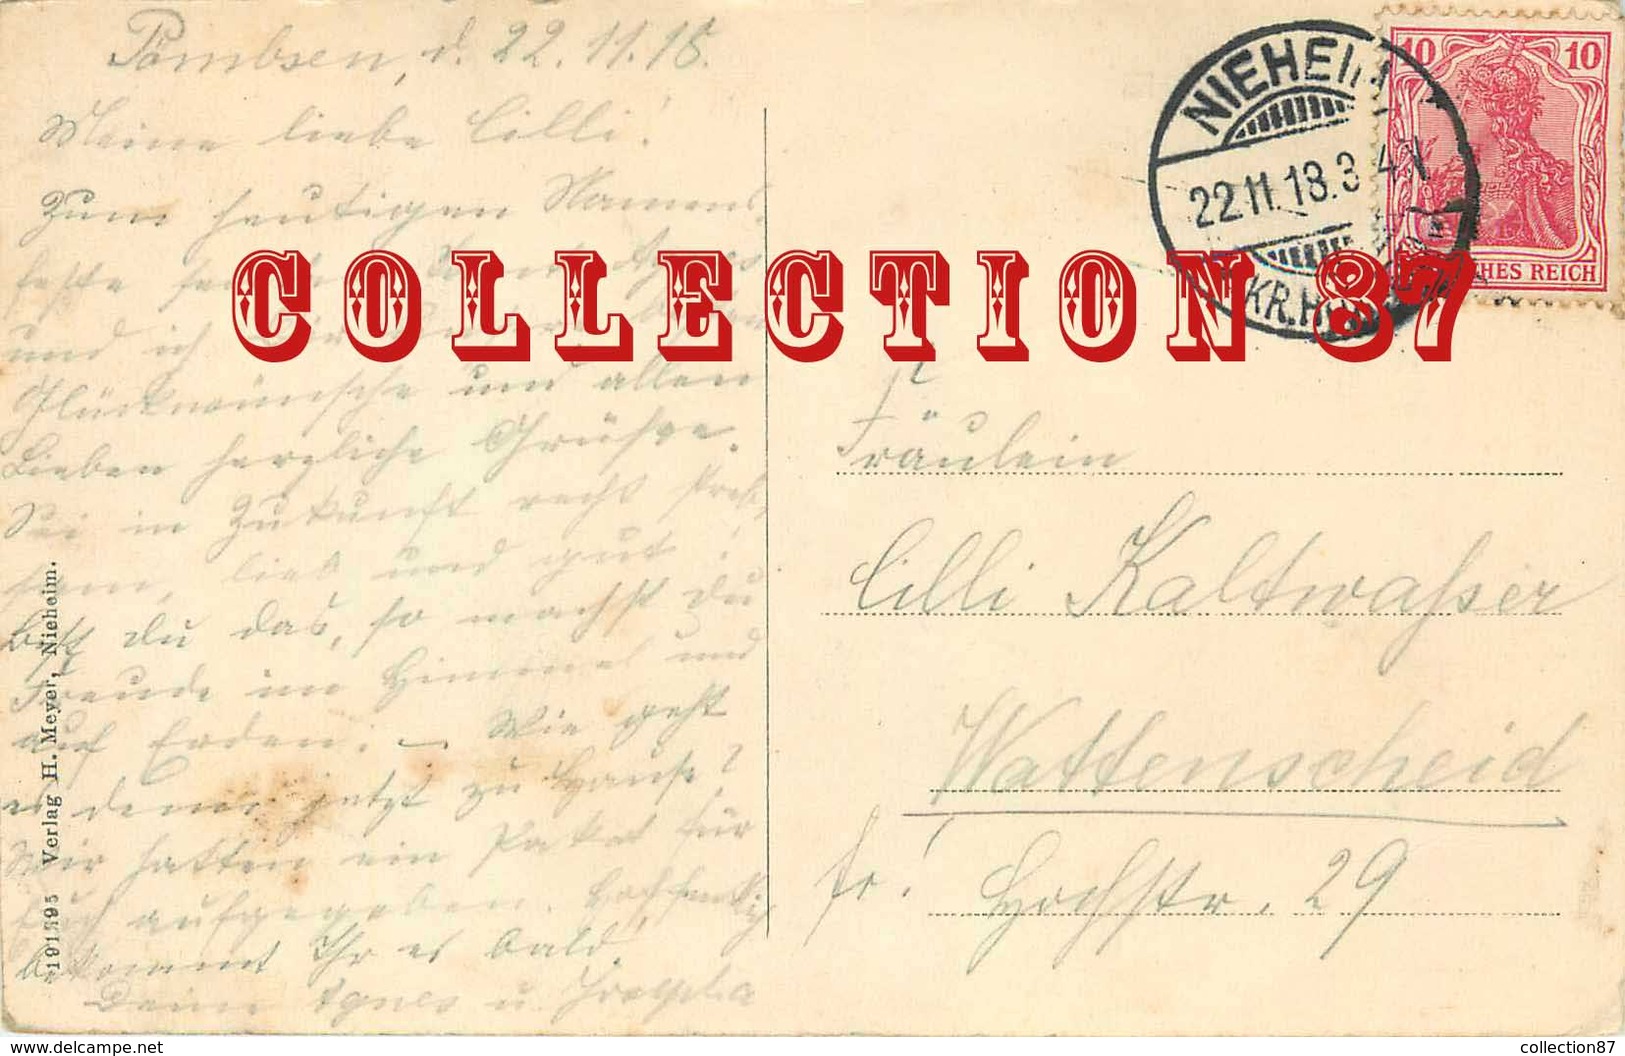 Pömbsen, d. 22.11.18.
Meine liebe Cilli!
Zum heutigen Namens-
feste
und ich
Glückwünsche und allen
Lieben herzliche Grüße.
Sei in Zukunft recht
lieb und gut!
Bist du das, so machst du
Freude im Himmel und
auf Erden. – Wie geht
es denn jetzt zu Hause?
Wir hatten ein Paket für
Euch aufgegeben. Hoffentlich
bekommt Ihr es bald.
Deine Agnes u.
191595 Verlag H. Meyer, Nieheim.
NIEHEIM
22.11.18.3-4N
KR.H
10 10
HES REICH
COLLECTION 87
Fräulein
Cilli Kaltwasser
Wattenscheid
fr! Hochstr. 29
www.delcampe.net
collection87